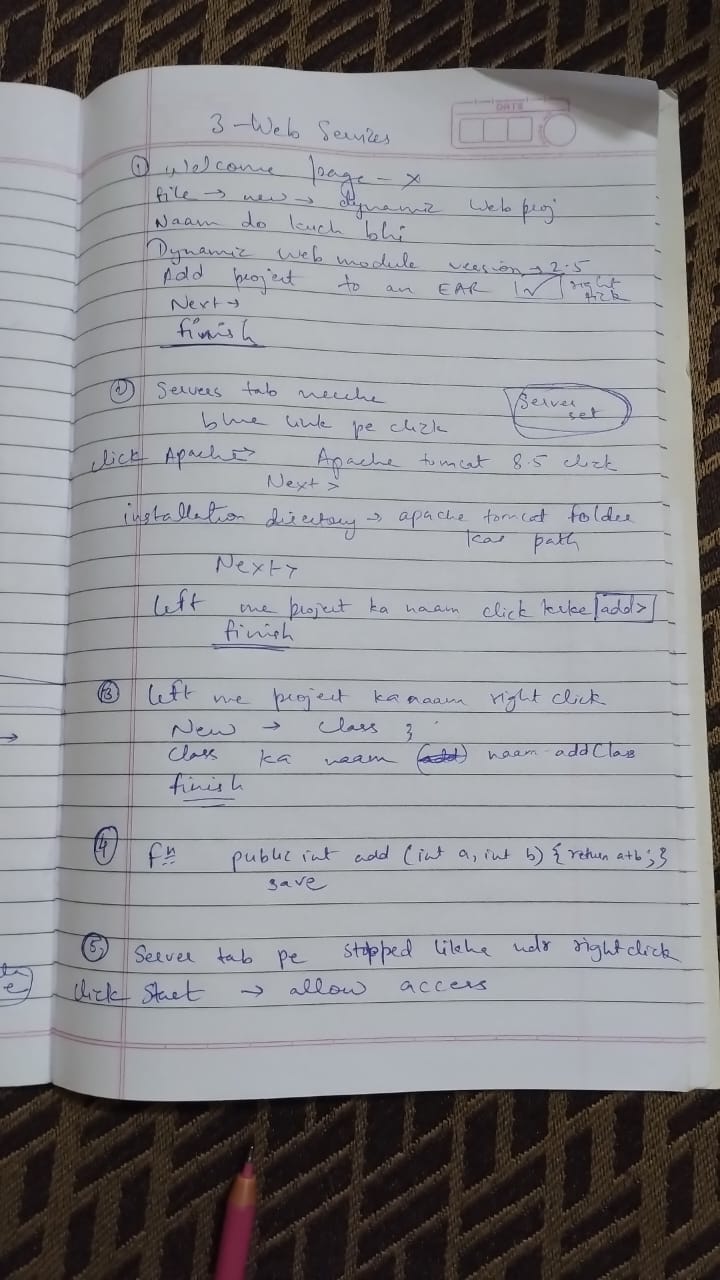 DATE
3 - Web Services
① Welcome page - x
file → new → dynamic Web proj
Naam do kuch bhi
Dynamic web module version → 2.5
Add project to an EAR ✓ right tick
Next →
finish
② Servers tab neeche
Server set
blue link pe click
click Apache > Apache tomcat 8.5 click
Next >
installation directory → apache tomcat folder
kaa path
Next >
left me project ka naam click krke add >
finish
③ left me project ka naam right click
New → class
Class ka naam naam - addClass
finish
④ fn public int add (int a, int b) { return a+b; }
save
⑤ Server tab pe stopped likha right click
click Start → allow access